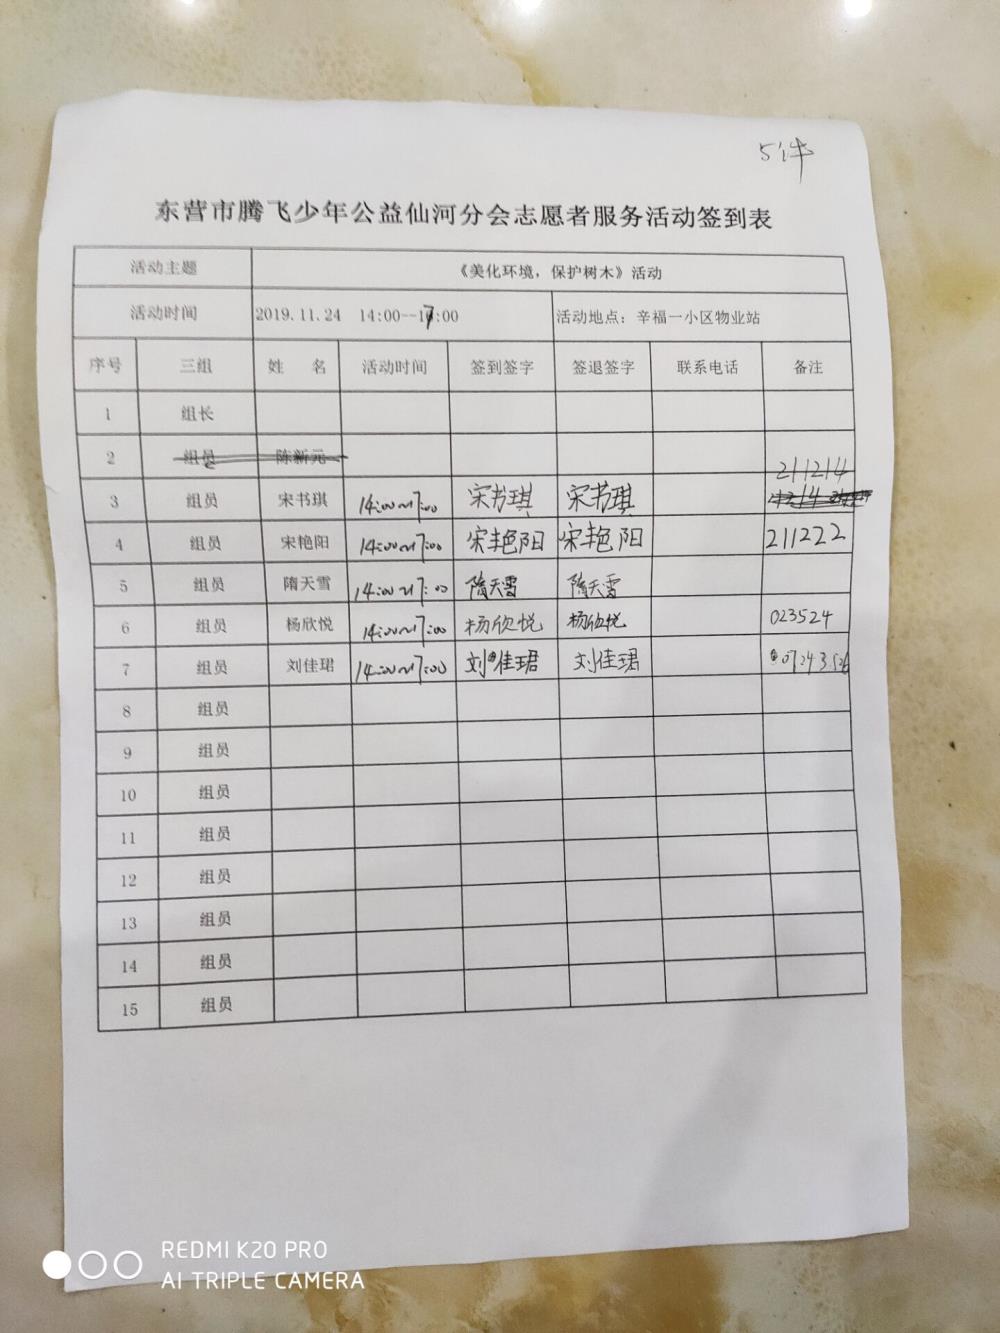 5件
东营市腾飞少年公益仙河分会志愿者服务活动签到表
活动主题 《美化环境，保护树木》活动
活动时间 2019.11.24 14:00--17:00 活动地点：辛福一小区物业站
序号 三组 姓 名 活动时间 签到签字 签退签字 联系电话 备注
1 组长
2 组员 陈新元
3 组员 宋书琪 14:00~17:00 宋书琪 宋书琪 211214
4 组员 宋艳阳 14:00~17:00 宋艳阳 宋艳阳 211222
5 组员 隋天雪 14:00~17:00 隋天雪 隋天雪
6 组员 杨欣悦 14:00~17:00 杨欣悦 杨欣悦 023524
7 组员 刘佳珺 14:00~17:00 刘佳珺 刘佳珺
8 组员
9 组员
10 组员
11 组员
12 组员
13 组员
14 组员
15 组员
REDMI K20 PRO
AI TRIPLE CAMERA